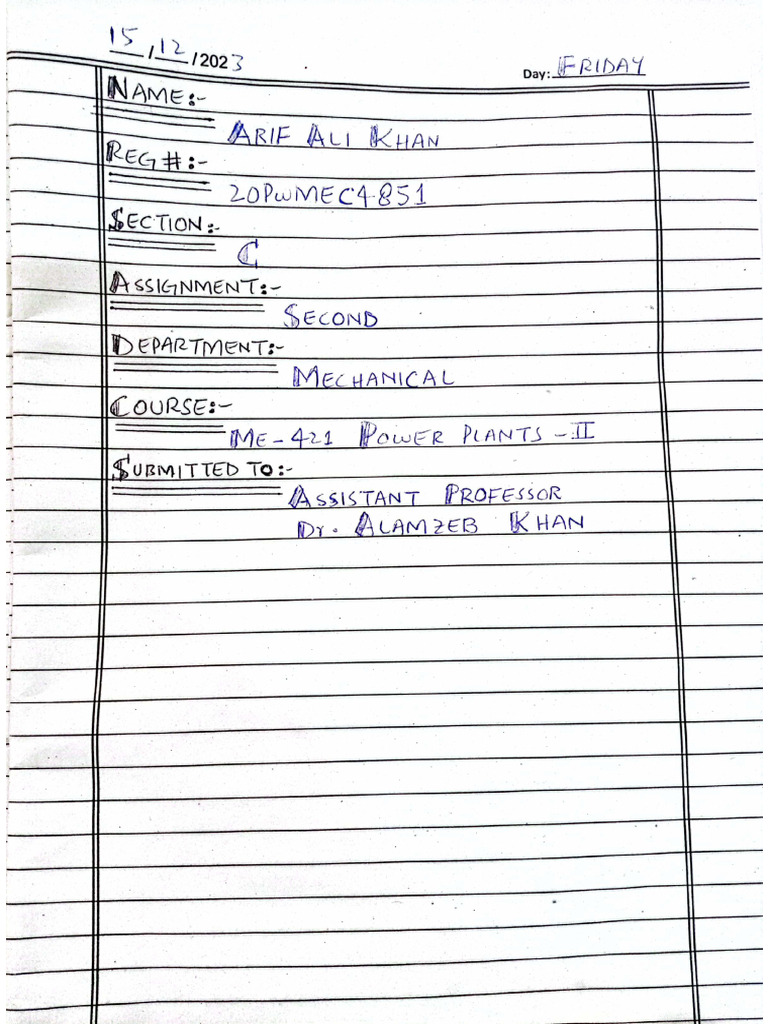 15/12/2023 Day: FRIDAY
NAME:-
ARIF ALI KHAN
REG #:-
20PWMEC4851
SECTION:-
C
ASSIGNMENT:-
SECOND
DEPARTMENT:-
MECHANICAL
COURSE:-
ME-421 POWER PLANTS-II
SUBMITTED TO:-
ASSISTANT PROFESSOR
Dr. ALAMZEB KHAN